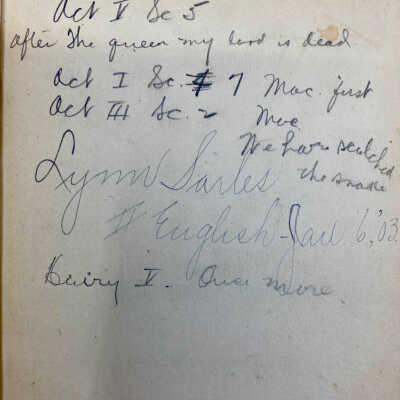 Act V Sc 5
After The queen my lord is dead
Act I Sc. 7 Mac. first
Act III Sc. 2 Mac
We have scotched
the snake
Lynn Sarles
II English - Jan 6, '03
Henry V. Once more.